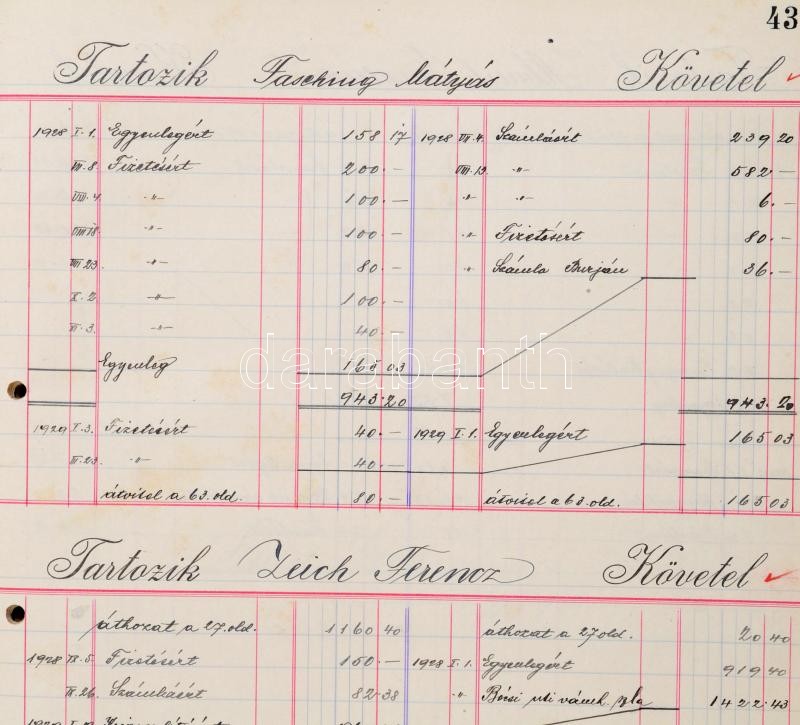 43
Tartozik Fasching Mátyás Követel
1928 I.1. Egyenlegért 158 17 1928 VII.4. Számláért 239 20
III.8. Fizetésért 200.— VIII.13. -"- 582.—
VIII.4. -"- 100.— " -"- 6.—
VIII.18. -"- 100.— " Fizetésért 80.—
VIII.23. -"- 80.— " Számla Burján 36.—
X.2. -"- 100.—
XI.3. -"- 40.—
Egyenleg 165 03
943.20 943.20
1929 I.3. Fizetésért 40.— 1929 I.1. Egyenlegért 165 03
III.23. -"- 40.—
átvitel a 63. old. 80.— átvitel a 63. old. 165 03
darabanth
Tartozik Zeich Ferencz Követel
áthozat a 27. old. 1160 40 áthozat a 27 old. 20 40
1928 Fizetésért 150.— 1928 I.1. Egyenlegért 919 40
III.26. Számláért 82.38 " Bécsi uti vámk. 1422.43